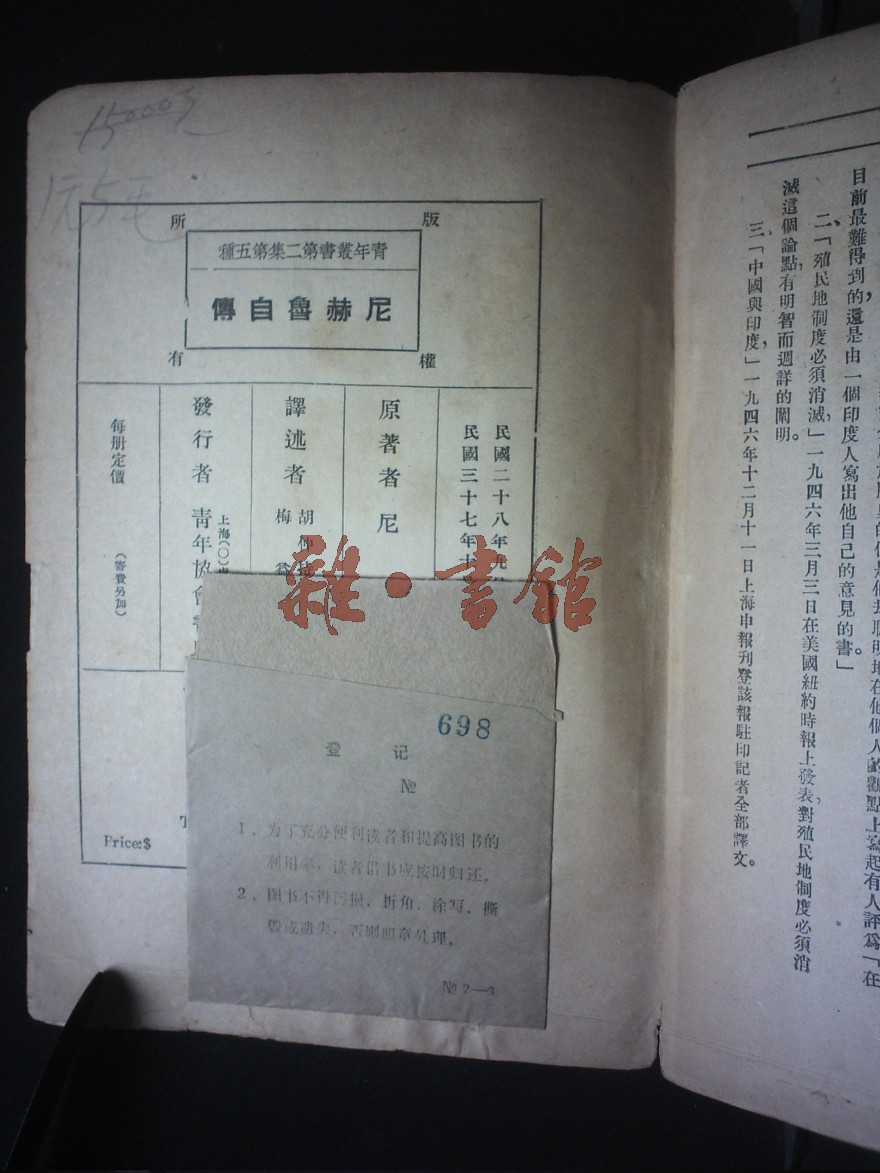 15000元
1元5毛
版權所有
青年叢書第二集第五種
尼赫魯自傳
民國二十八年九
民國三十七年十
原著者 尼
譯述者 胡仲持
梅 益
上海(〇)
發行者 青年協會書
每册定價 (寄費另加)
Price:$
雜·書館
698
登记
№
1、为了充分便利读者和提高图书的
利用率,读者借书应按时归还。
2、图书不得污损,折角、涂写、撕
毁或遗失,否则照章处理。
№ 2—3
目前最難得到的還是由一個印度人寫出他自己的意見的書。」
二、「殖民地制度必須消滅,」一九四六年三月三日在美國紐約時報上發表,對殖民地制度必須消
滅這個論點,有明智而週詳的闡明。
三、「中國與印度,」一九四六年十二月十一日上海申報刊登該報駐印記者全部譯文。